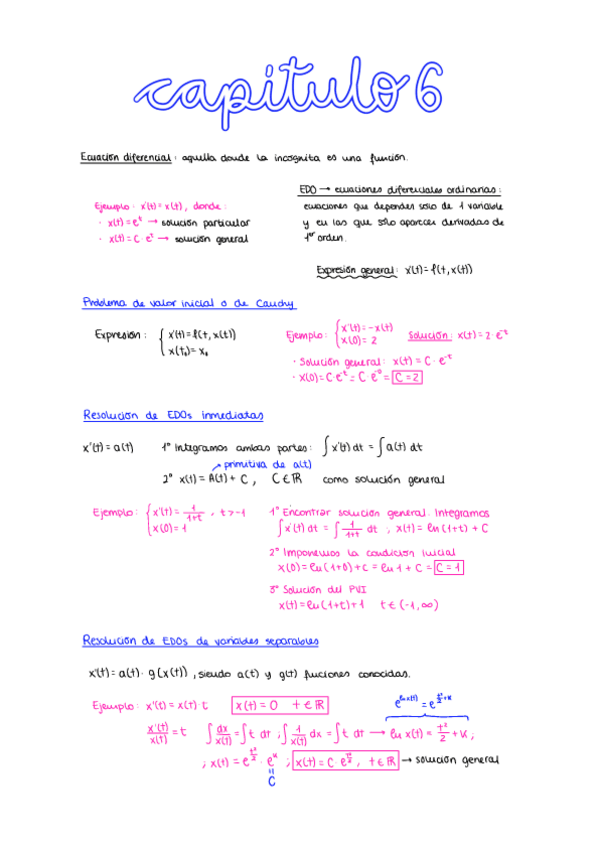 capitulo 6
Ecuación diferencial: aquella donde la incognita es una función.
Ejemplo: x'(t) = x(t), donde:
· x(t) = e^t → solución particular
· x(t) = C · e^t → solución general
EDO → ecuaciones diferenciales ordinarias:
ecuaciones que dependen solo de 1 variable
y en las que sólo aparecen derivadas de
1er orden.
Expresión general: x'(t) = f(t, x(t))
Problema de valor inicial o de Cauchy
Expresión: { x'(t) = f(t, x(t))
x(t₀) = x₀
Ejemplo: { x'(t) = -x(t)
x(0) = 2
Solución: x(t) = 2 · e^-t
· Solución general: x(t) = C · e^-t
· x(0) = C · e^-t = C · e^-0 = C = 2
Resolución de EDOs inmediatas
x'(t) = a(t) 1º Integramos ambas partes: ∫ x'(t) dt = ∫ a(t) dt
primitiva de a(t)
2º x(t) = A(t) + C, C ∈ ℝ como solución general
Ejemplo: { x'(t) = 1/1+t, t > -1
x(0) = 1
1º Encontrar solución general: Integramos
∫ x'(t) dt = ∫ 1/1+t dt ; x(t) = ln(1+t) + C
2º Imponemos la condición inicial
x(0) = ln(1+0) + c = ln 1 + C = C = 1
3º Solución del PVI
x(t) = ln(1+t) + 1 t ∈ (-1, ∞)
Resolución de EDOs de variables separables
x'(t) = a(t) · g(x(t)), siendo a(t) y g(t) funciones conocidas.
Ejemplo: x'(t) = x(t) · t x(t) = 0 t ∈ ℝ
e^ln x(t) = e^t²/2 + K
x'(t)/x(t) = t ∫ dx/x(t) = ∫ t dt ; ∫ 1/x(t) dx = ∫ t dt → ln x(t) = t²/2 + K ;
; x(t) = e^t²/2 · e^K ; x(t) = C · e^t²/2, t ∈ ℝ → solución general
=
C